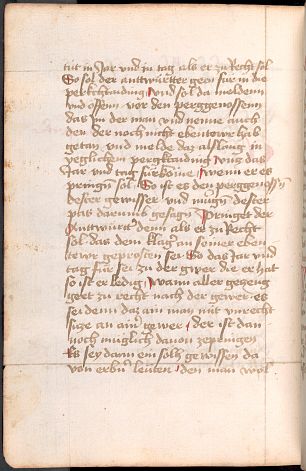 tut in Jar vnd in tag als er zu Recht sol
So sol der antwurtter geen für in die
perkchtaiding vnd sol da meldenn
vnd offenn vor den perggenossenn
das im der man vnd nenne auch
den der noch nicht ebentewr hab
getan vnd melde das alslang in
yeglichem pergktaiding vntz das
Jar vnd tag für köme wenn er es
pringen sol So ist es den perggenossen
bester gewisser vnd mugen dester
pas darumb gesagen Pringet der
Antwurter denn als er zu Recht
sol das dem klager an seiner eben
tewr geprosten sei So das Jar vnd
tag für sei zu der gwer die er hat
so ist er ledig wann aller geczeug
geet zu recht nach der gewer es
sei denn daz ain man mit vnrecht
sitze an ainer gewer der ist dan
noch muglich dauon zepringen
Es sey dann ein solh gewissen da
von erbern leuten den man wol